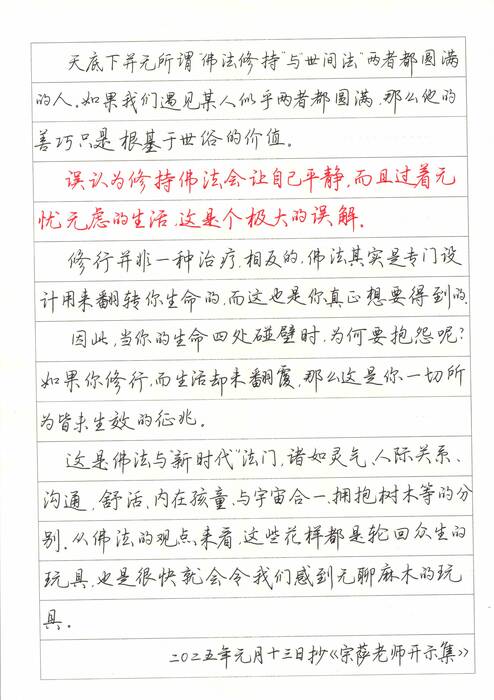 天底下并无所谓“佛法修持”与“世间法”两者都圆满
的人。如果我们遇见某人似乎两者都圆满,那么他的
善巧只是根基于世俗的价值。
误认为修持佛法会让自己平静,而且过着无
忧无虑的生活,这是个极大的误解。
修行并非一种治疗,相反的,佛法其实是专门设
计用来翻转你生命的,而这也是你真正想要得到的。
因此,当你的生命四处碰壁时,为何要抱怨呢?
如果你修行,而生活却未翻覆,那么这是你一切所
为皆未生效的征兆。
这是佛法与“新时代”法门,诸如灵气、人际关系、
沟通,舒活,内在孩童、与宇宙合一、拥抱树木等的分
别。从佛法的观点来看,这些花样都是轮回众生的
玩具,也是很快就会令我们感到无聊麻木的玩
具。
二〇二五年元月十三日抄《宗萨老师开示集》